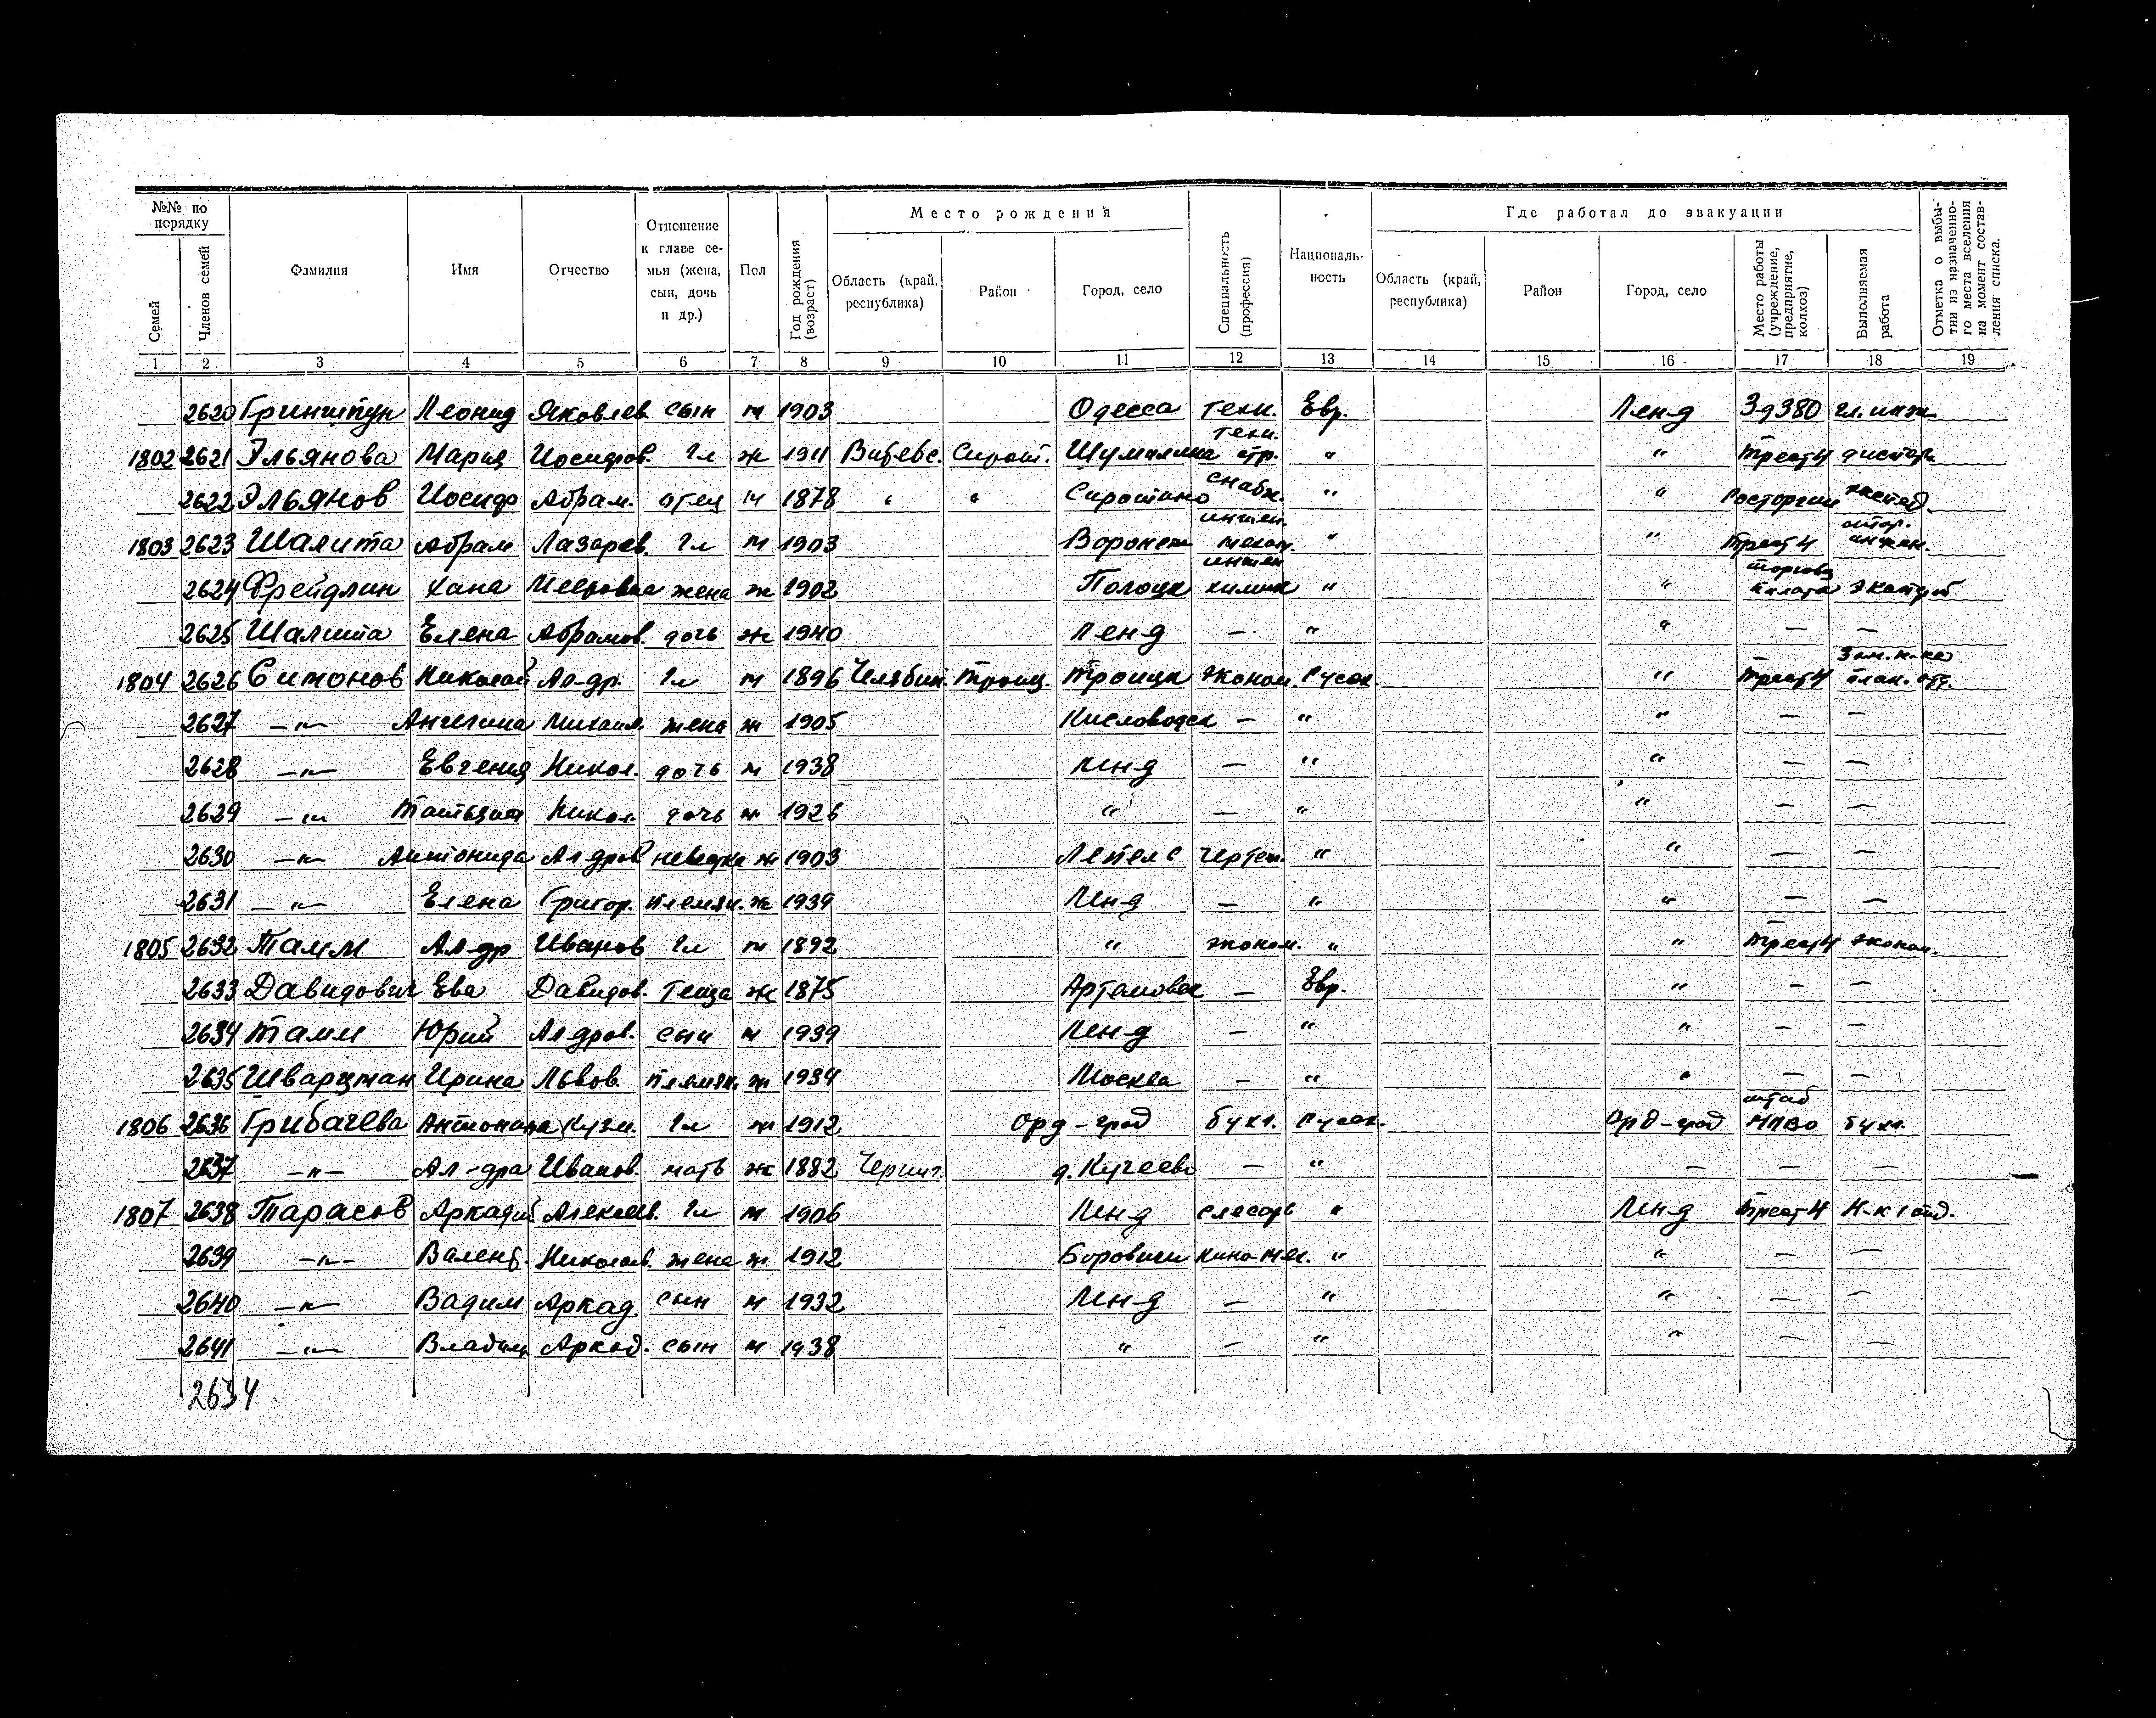 №№ по порядку Фамилия Имя Отчество Отношение к главе семьи (жена, сын, дочь и др.) Пол Год рождения (возраст) Место рождения Специальность (профессия) Национальность Где работал до эвакуации Отметка о выбытии из назначенного места вселения на момент составления списка.
Семей Членов семей Область (край, республика) Район Город, село Область (край, республика) Район Город, село Место работы (учреждение, предприятие, колхоз) Выполняемая работа
1 2 3 4 5 6 7 8 9 10 11 12 13 14 15 16 17 18 19
2620 Гринштун Леонид Яковлев. сын м 1903 Одесса техн. Евр. Лен-д Зд 380 гл. инж.
1802 2621 Эльянова Мария Иосифов. гл ж 1911 Витебс. Сирот. Шумилина техн. стр. " " Трест 4 диспетч.
2622 Эльянов Иосиф Абрам. отец м 1878 " " Сиротино снабж. " "
1803 2623 Шалита Абрам Лазарев. гл м 1903 Воронеж инжен. механ. " " Трест 4 инжен.
2624 Фрейдлин Хана Мееровна жена ж 1902 Полоцк инжен химик " " торгов палата
2625 Шалита Елена Абрамов. дочь ж 1940 Лен-д — " " — —
1804 2626 Симонов Николай Ал-др. гл м 1896 Челябин. Троиц. Троицк эконом. Русск. " Трест 4 Зам. н-ка план. отд.
2627 —"— Ангелина Михаил. жена ж 1905 Кисловодск — " " — —
2628 —"— Евгения Никол. дочь м 1938 Лен-д — " " — —
2629 —"— Татьяна Никол. дочь ж 1926 " — " " — —
2630 —"— Антонида Ал-дров. невестка ж 1903 Лепель Чертеж. " " — —
2631 —"— Елена Григор. племян. ж 1939 Лен-д — " " — —
1805 2632 Тамм Ал-др Иванов гл м 1892 " эконом. " " Трест 4 эконом.
2633 Давидович Ева Давидов. теща ж 1875 Артемовск — Евр. " — —
2634 Тамм Юрий Ал-дров. сын м 1939 Лен-д — " " — —
2635 Шварцман Ирина Львов. племян. ж 1934 Москва — " " — —
1806 2636 Грибачева Антонина Кузм. гл ж 1912 Орд-град бухг. Русск. Орд-град штаб МПВО бухг.
2637 —"— Ал-дра Иванов. мать ж 1882 Черниг. д. Кучеево — " — — —
1807 2638 Тарасов Аркадий Алексеев. гл м 1906 Лен-д слесарь " Лен-д Трест 4 Н-к 1 отд.
2639 —"— Валент. Николаев. жена ж 1912 Боровичи кино-мех. " " — —
2640 —"— Вадим Аркад. сын м 1932 Лен-д — " " — —
2641 —"— Владим Аркад. сын м 1938 " — " " — —
2634